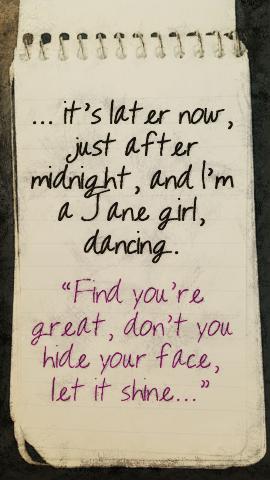 ... it's later now,
just after
midnight, and I'm
a Jane girl,
dancing.
"Find you're
great, don't you
hide your face,
let it shine..."